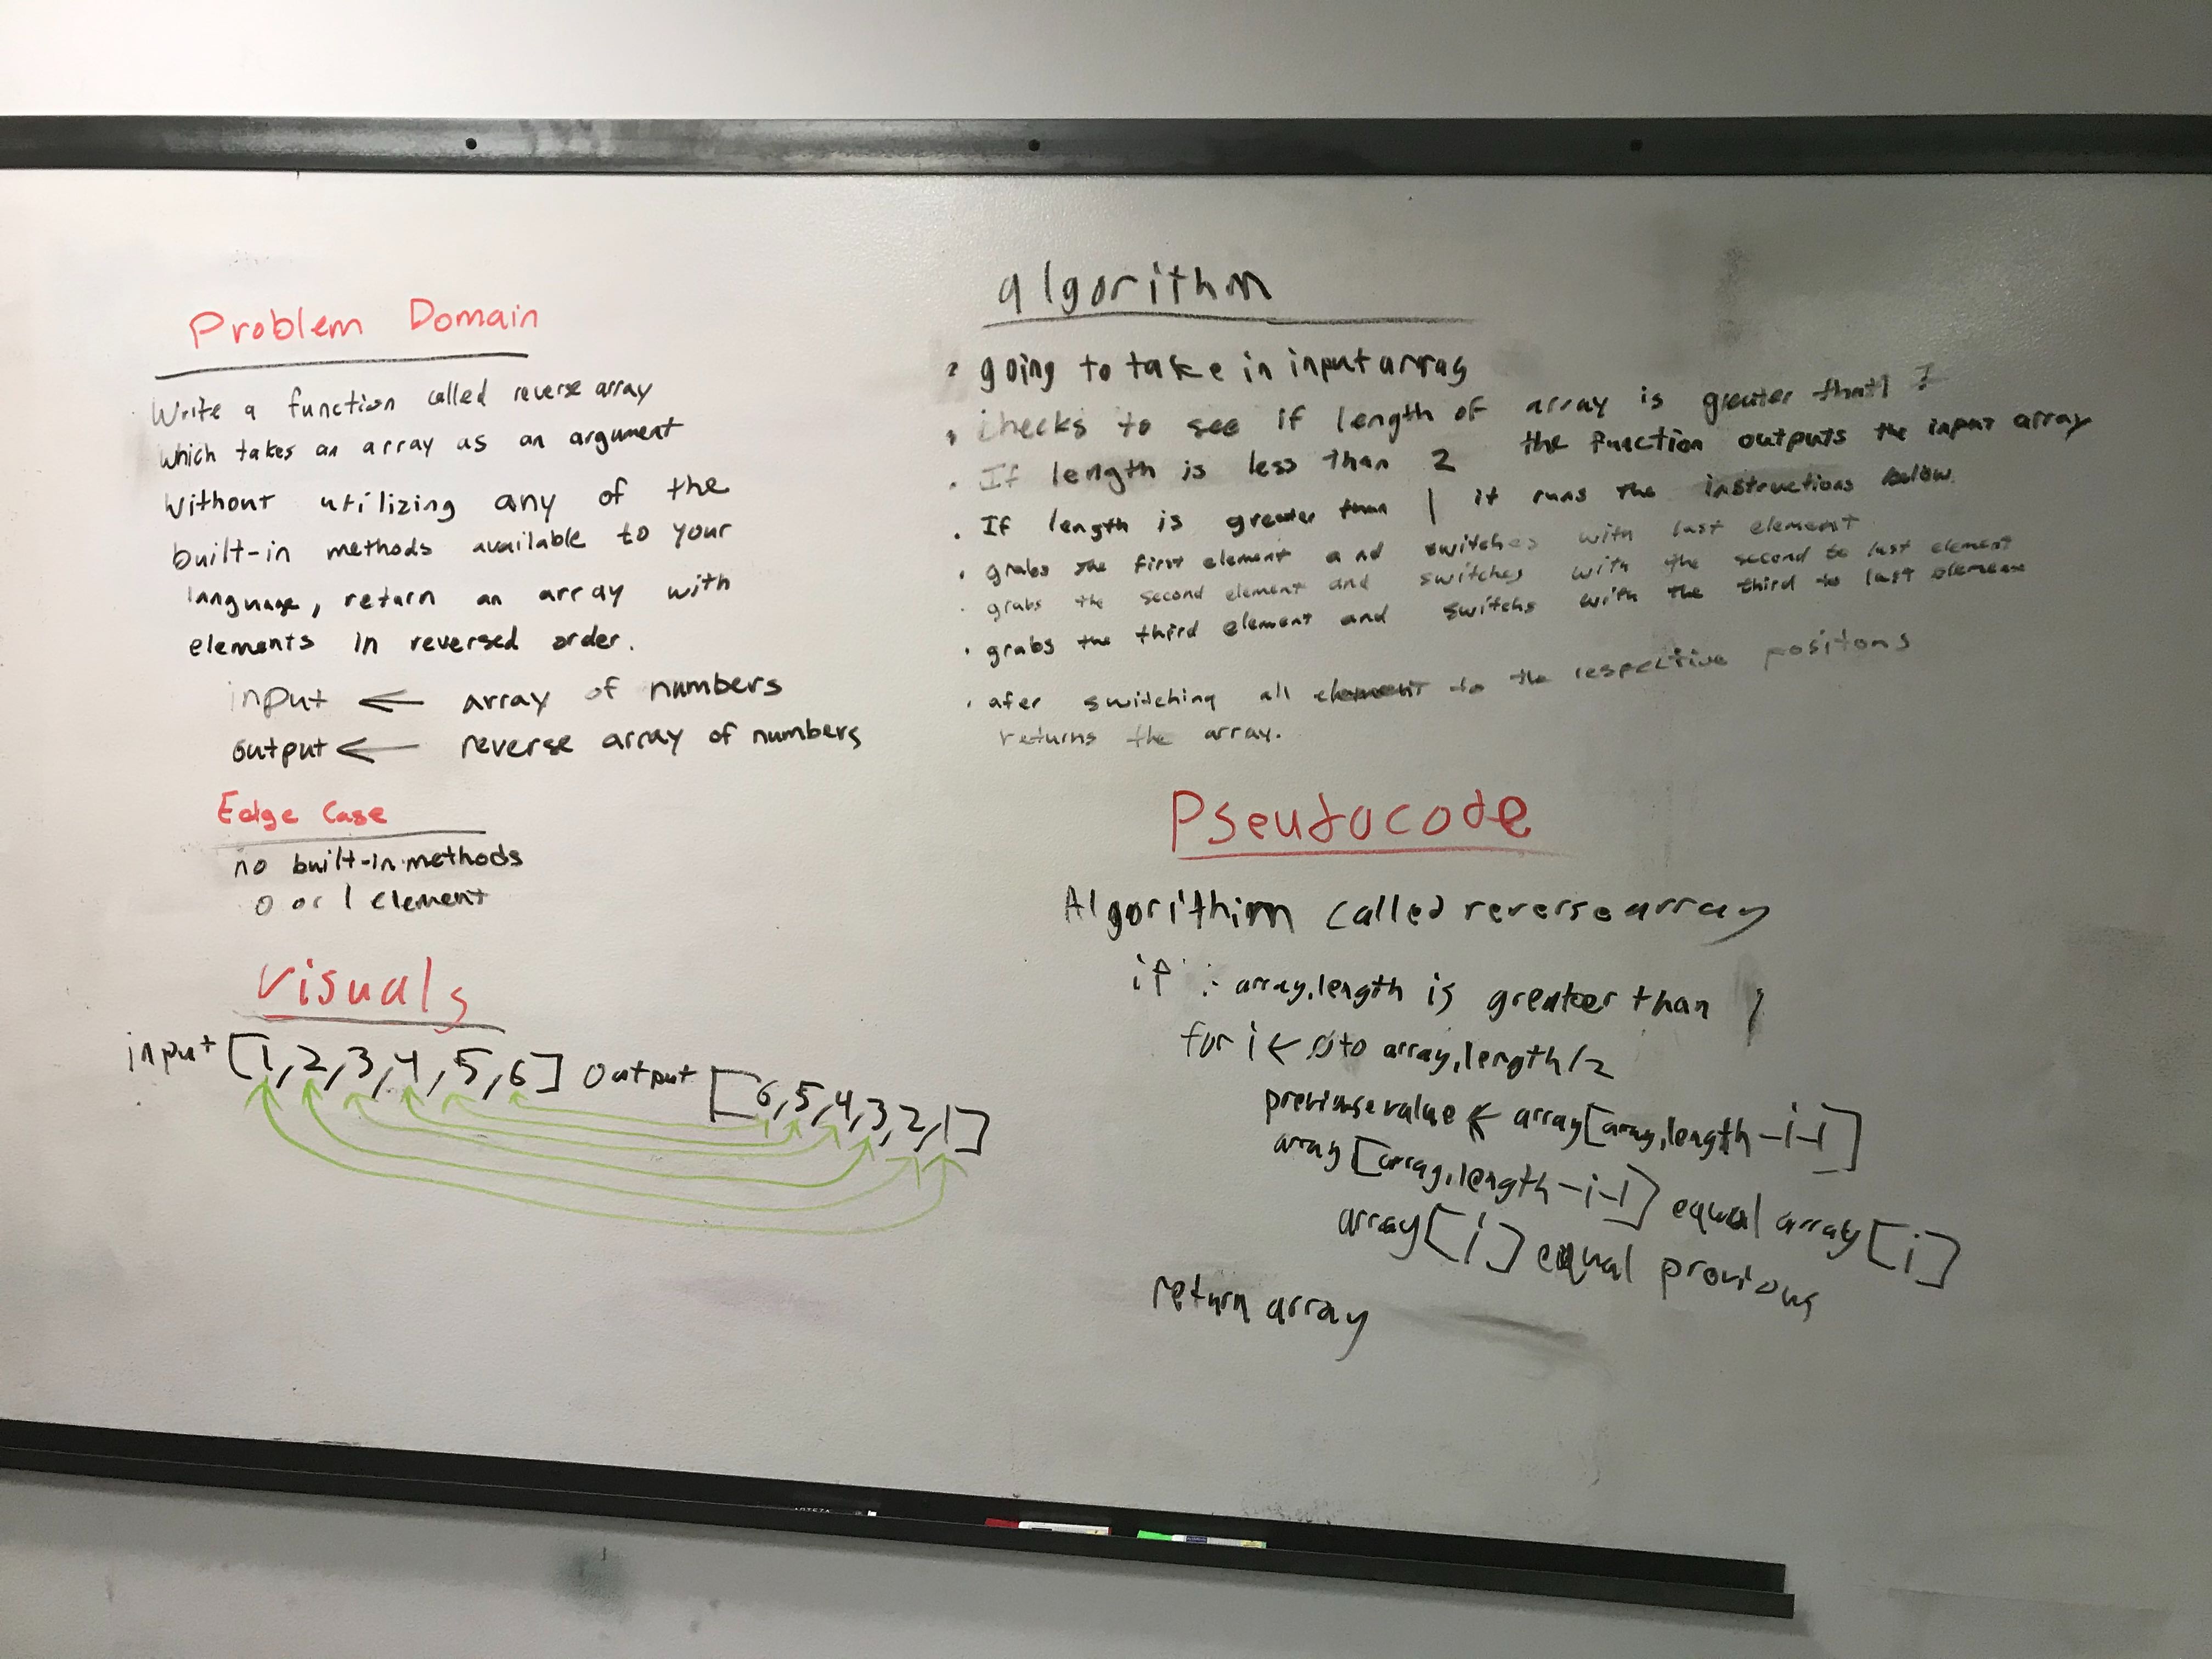 Problem Domain
Write a function called reverse array
which takes an array as an argument
without utilizing any of the
built-in methods available to your
language, return an array with
elements in reversed order.
input ← array of numbers
output ← reverse array of numbers
Edge Case
no built-in methods
0 or 1 element
Visuals
input [1,2,3,4,5,6] output [6,5,4,3,2,1]
algorithm
• going to take in input array
• checks to see if length of array is greater than 1 ?
• If length is less than 2 the function outputs the input array
• If length is greater than 1 it runs the instructions below
• grabs the first element and switches with last element
• grabs the second element and switches with the second to last element
• grabs the third element and switchs with the third to last element
• afer switching all element to the respective positons
returns the array.
Pseudocode
Algorithim called reversearray
if : array.length is greater than 1
for i ← 0 to array.length/2
value ← array[array.length-i-1]
array[array.length-i-1] equal array[i]
array[i] equal previous
return array